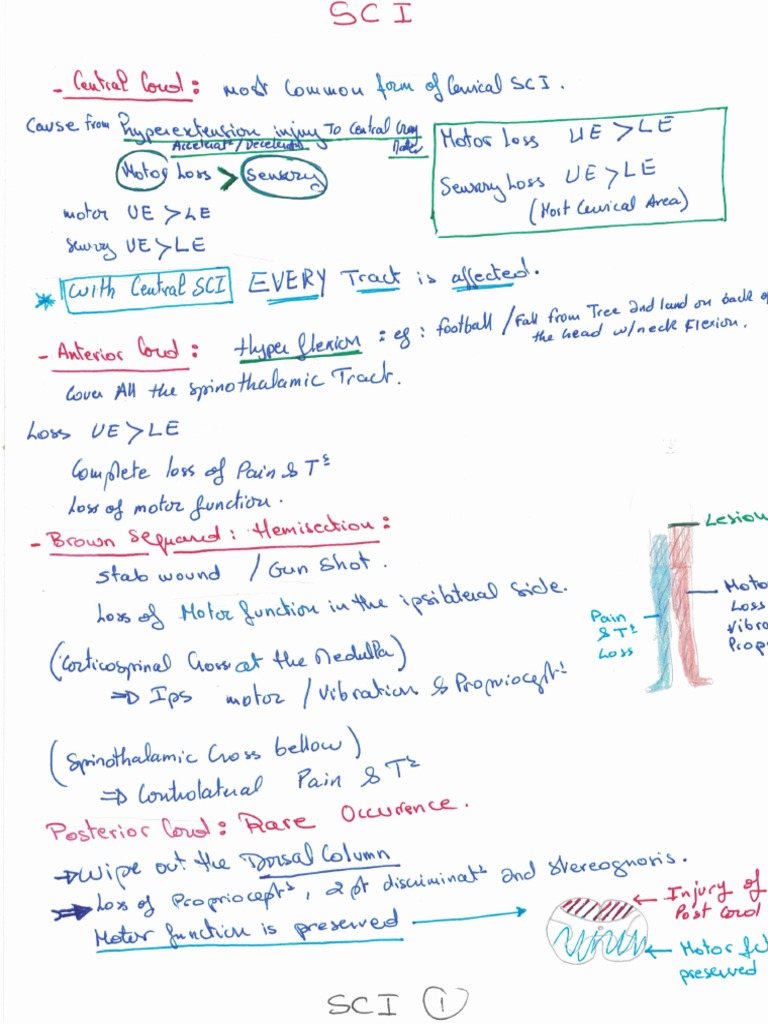 SCI
- Central Cord: most common form of Cervical SCI.
Cause from Hyperextension injury To Central Gray Matter
Accelerat°/Decelerat°
Motor Loss > Sensory
motor UE > LE
sensory UE > LE
Motor Loss UE > LE
Sensory Loss UE > LE
(Most Cervical Area)
* With Central SCI EVERY Tract is affected.
- Anterior Cord: Hyper flexion: eg: football / Fall from Tree and land on back of
the head w/neck Flexion.
Cover All the spinothalamic Tract.
Loss UE > LE
Complete loss of Pain & T°
Loss of motor function.
- Brown Sequard: Hemisection:
Stab wound / Gun Shot.
Loss of Motor function in the ipsilateral side.
(Corticospinal Cross at the Medulla)
⇒ Ips motor / Vibration & Propriocept°
(Spinothalamic Cross bellow)
⇒ Controlateral Pain & T°
Lesion
Pain
& T°
Loss
Moto
Loss
Vibra
Prop
Posterior Cord: Rare Occurence.
→ Wipe out the Dorsal Column
⇒ Loss of Propriocept°, 2 pt discriminat° and stereognosis.
Motor function is preserved →
← Injury of
Post Cord
← Motor fct
preserved
SCI 1